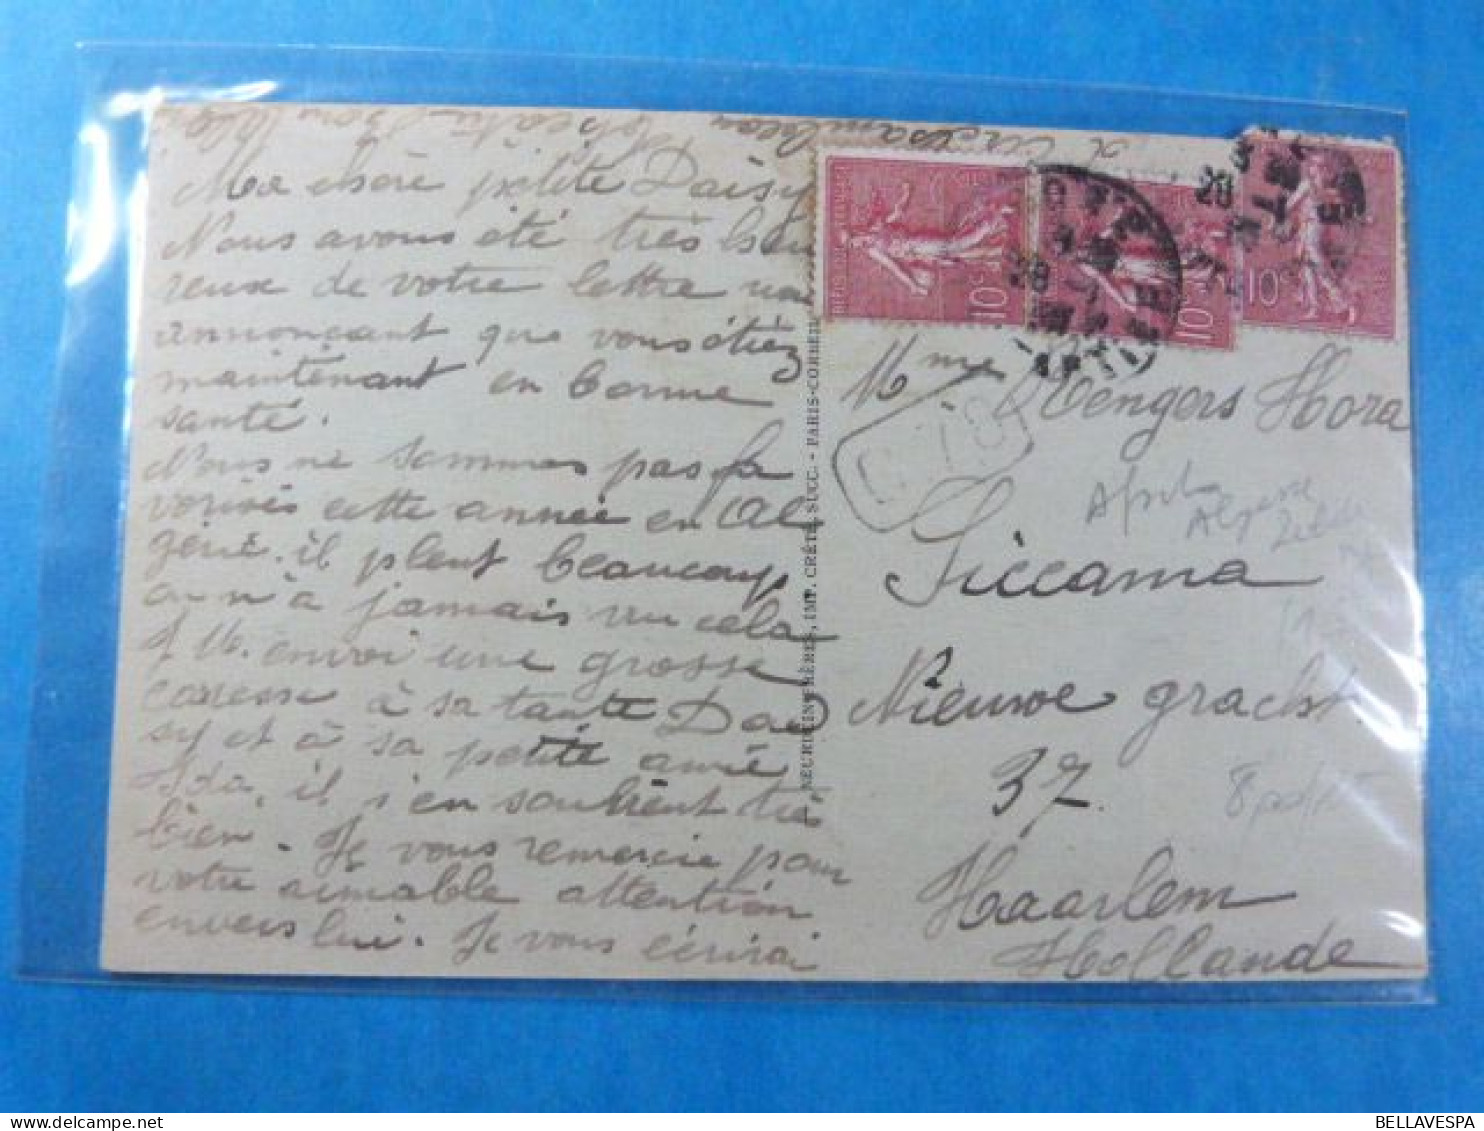 Ma chère petite Daisy
Nous avons été très heu
reuse de votre lettre
annonçant que vous étiez
maintenant en bonne
santé.
Nous ne sommes pas fa
vorisés cette année en Al
gérie. il pleut beaucoup
on n'a jamais vu cela
J M. envoi une grosse
caresse à sa tante Dai
sy et à sa petite amie
Ada, il s'en souvient très
bien. Je vous remercie pour
votre aimable attention
envers lui. Je vous écrirai
NEURDEIN FRÈRES, IMP. CRÉTÉ, SUCC. - PARIS-CORBEIL
10c
10c
10c
Mme Wengers Hora
Siccama
Nieuwe gracht
37.
Haarlem
Hollande
Afrika
BELLAVESPA